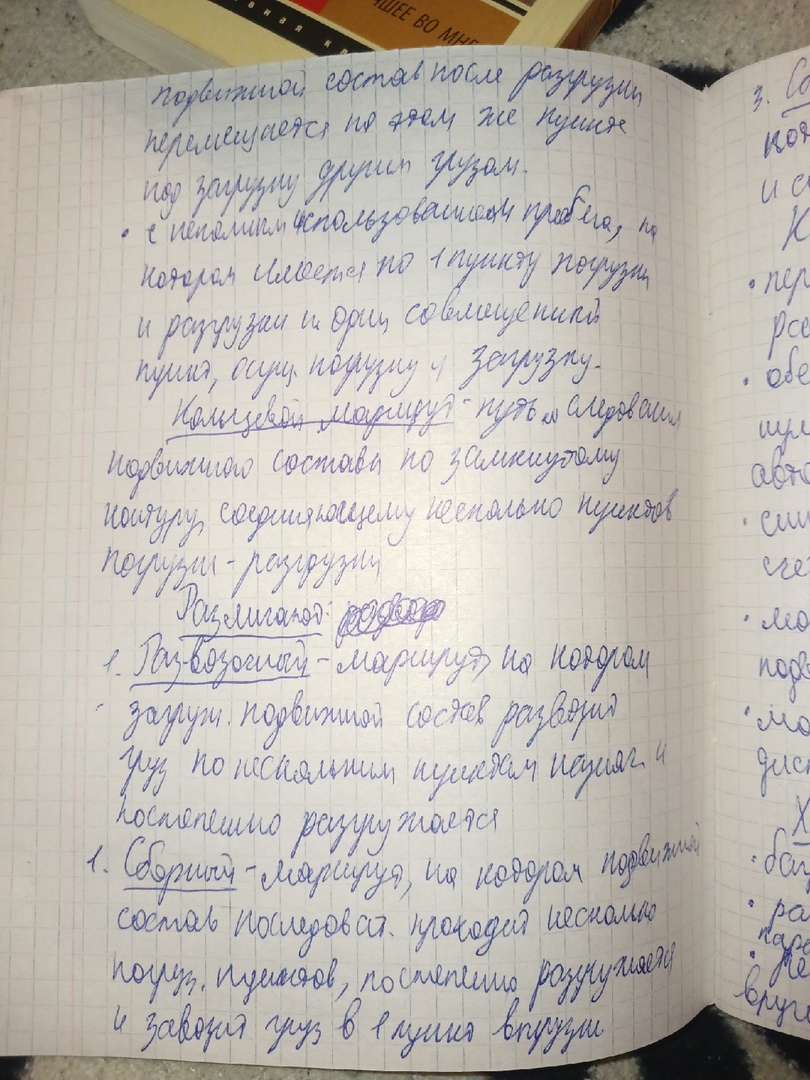 ЧШЕЕ ВО МНЕ
подвижной состав после разгрузки
перемещается по этом же пункте
под загрузку другим грузом.
• с неполным использованием пробега, на
котором имеется по 1 пункту погрузки
и разгрузки и один совмещенный
пункт, осущ. погрузку и загрузку.
Кольцевой маршрут - путь следования
подвижного состава по замкнутому
контуру, соединяющему несколько пунктов
погрузки - разгрузки
Различают:
1. Развозочный - маршрут, на котором
загруж. подвижной состав развозит
груз по нескольким пунктам назнач. и
постепенно разгружается
1. Сборный - маршрут, на котором подвижной
состав последоват. проходит несколько
погруз. пунктов, постепенно разгружается
и завозит груз в 1 пункт выгрузки
3. Со
кот
и с
К
• пер
рас
• обе
нул
авто
сче
• мо
подв
• мо
дисп
Х
• ра